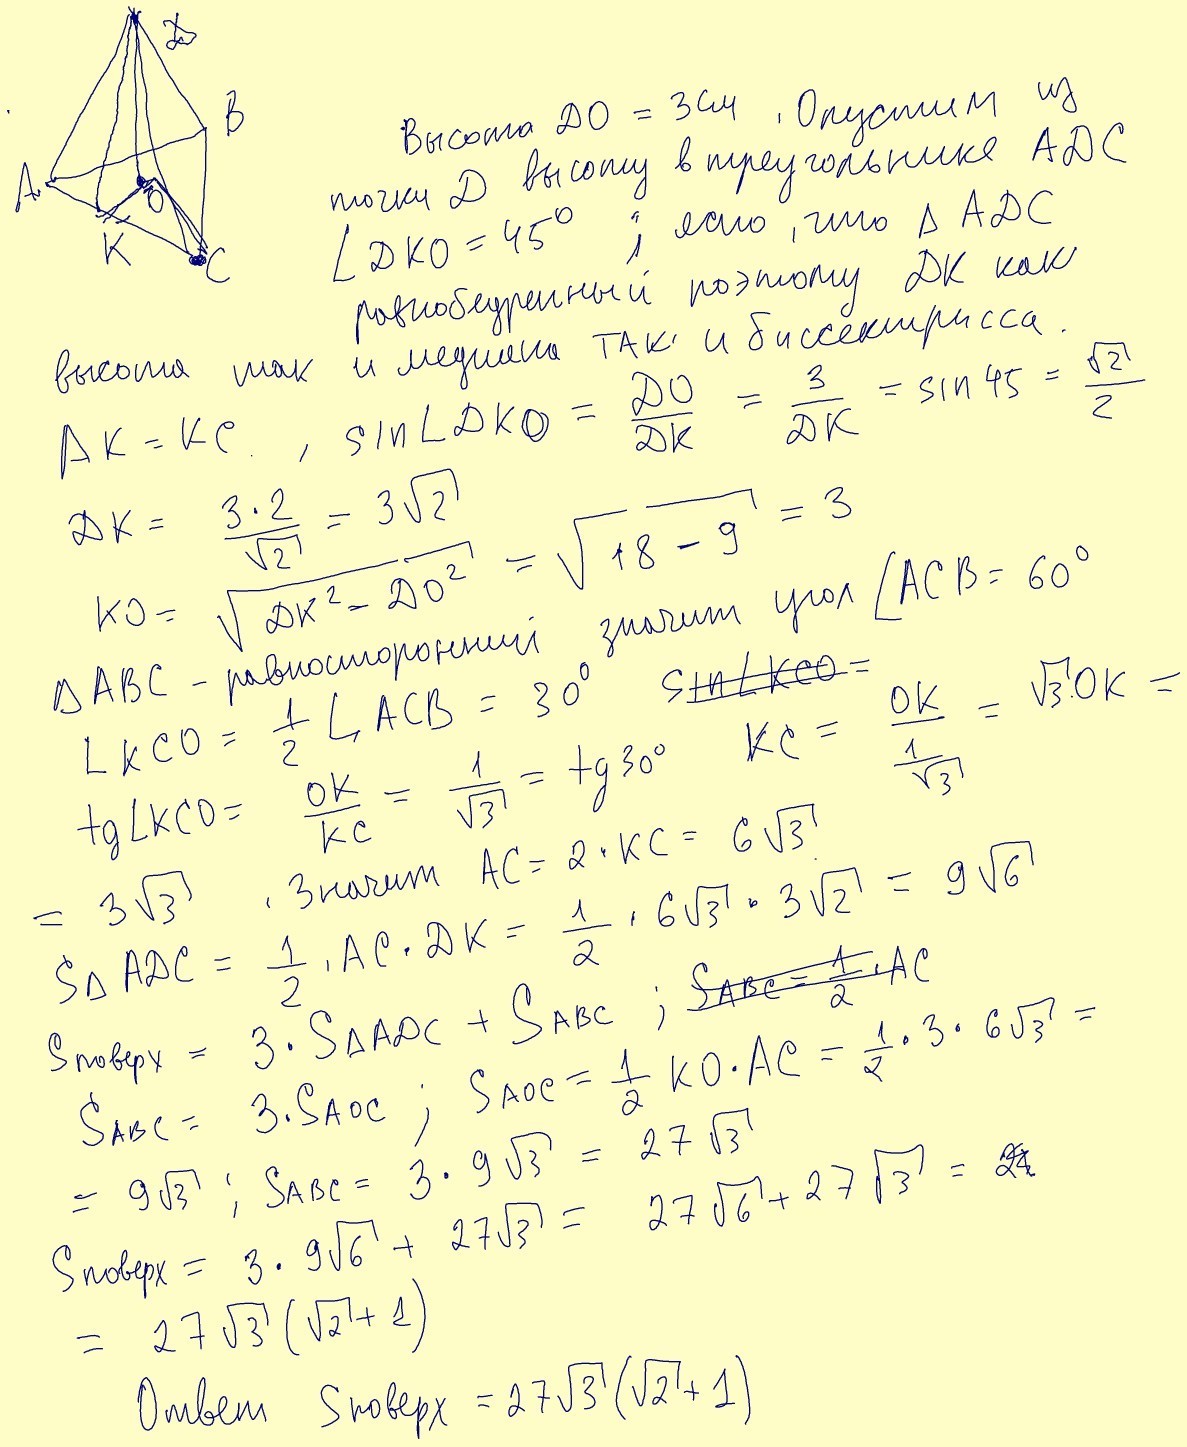 D
B
A
O
K
C
Высота DO = 3см . Опустим из
точки D высоту в треугольнике ADC
∠DKO = 45° ; ясно, что Δ ADC
равнобедренный поэтому DK как
высота так и медиана ТАК и биссектрисса.
AK = KC , sin∠DKO = DO/DK = 3/DK = sin45 = √2/2
DK = 3·2/√2 = 3√2
KO = √(DK² - DO²) = √(18 - 9) = 3
ΔABC - равносторонний значит угол ∠ACB = 60°
∠KCO = 1/2 ∠ACB = 30° sin∠KCO =
tg∠KCO = OK/KC = 1/√3 = tg30° KC = OK/(1/√3) = √3·OK =
= 3√3 . Значит AC = 2·KC = 6√3
SΔADC = 1/2 · AC · DK = 1/2 · 6√3 · 3√2 = 9√6
Sповерх = 3·SΔADC + SABC ; SABC = 1/2 · AC
SABC = 3·SAOC ; SAOC = 1/2 KO·AC = 1/2 · 3 · 6√3 =
= 9√3 ; SABC = 3 · 9√3 = 27√3
Sповерх = 3 · 9√6 + 27√3 = 27√6 + 27√3 =
= 27√3 (√2 + 1)
Ответ Sповерх = 27√3 (√2 + 1)